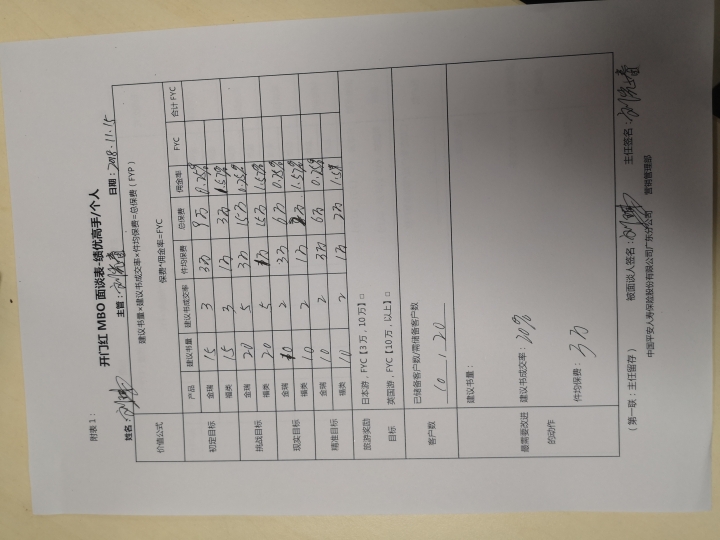 附表 1：
开门红 MBO 面谈表-绩优高手/个人
姓名： 主管： 日期：2018.11.15
价值公式 建议书量×建议书成交率×件均保费=总保费（FYP）
保费*佣金率=FYC
产品 建议书量 建议书成交率 件均保费 总保费 佣金率 FYC 合计 FYC
初定目标 金瑞 15 3 3万 9万 0.25%
福类 15 3 1万 3万 1.57%
挑战目标 金瑞 20 5 3万 15万 0.25%
福类 20 5 1万 15万 1.57%
现实目标 金瑞 10 2 3万 6万 0.25%
福类 10 2 1万 2万 1.57%
精准目标 金瑞 10 2 3万 6万 0.25%
福类 10 2 1万 2万
旅游奖励目标 日本游，FYC【3万，10万】□
英国游，FYC【10万，以上】□
客户数 已储备客户数/需储备客户数
10 / 20
最需要改进的动作 建议书量：
建议书成交率：20%
件均保费：3万
（第一联：主任留存） 被面谈人签名： 主任签名：
中国平安人寿保险股份有限公司广东分公司 营销管理部